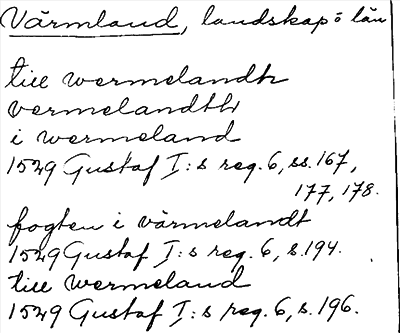 Värmland, landskap o län
till wermelandh
vermelandth
i wermeland
1529 Gustaf I:s reg. 6, ss. 167,
177, 178.
fogten i värmelandt
1529 Gustaf I:s reg. 6, s. 194.
till wermeland
1529 Gustaf I:s reg. 6, s. 196.